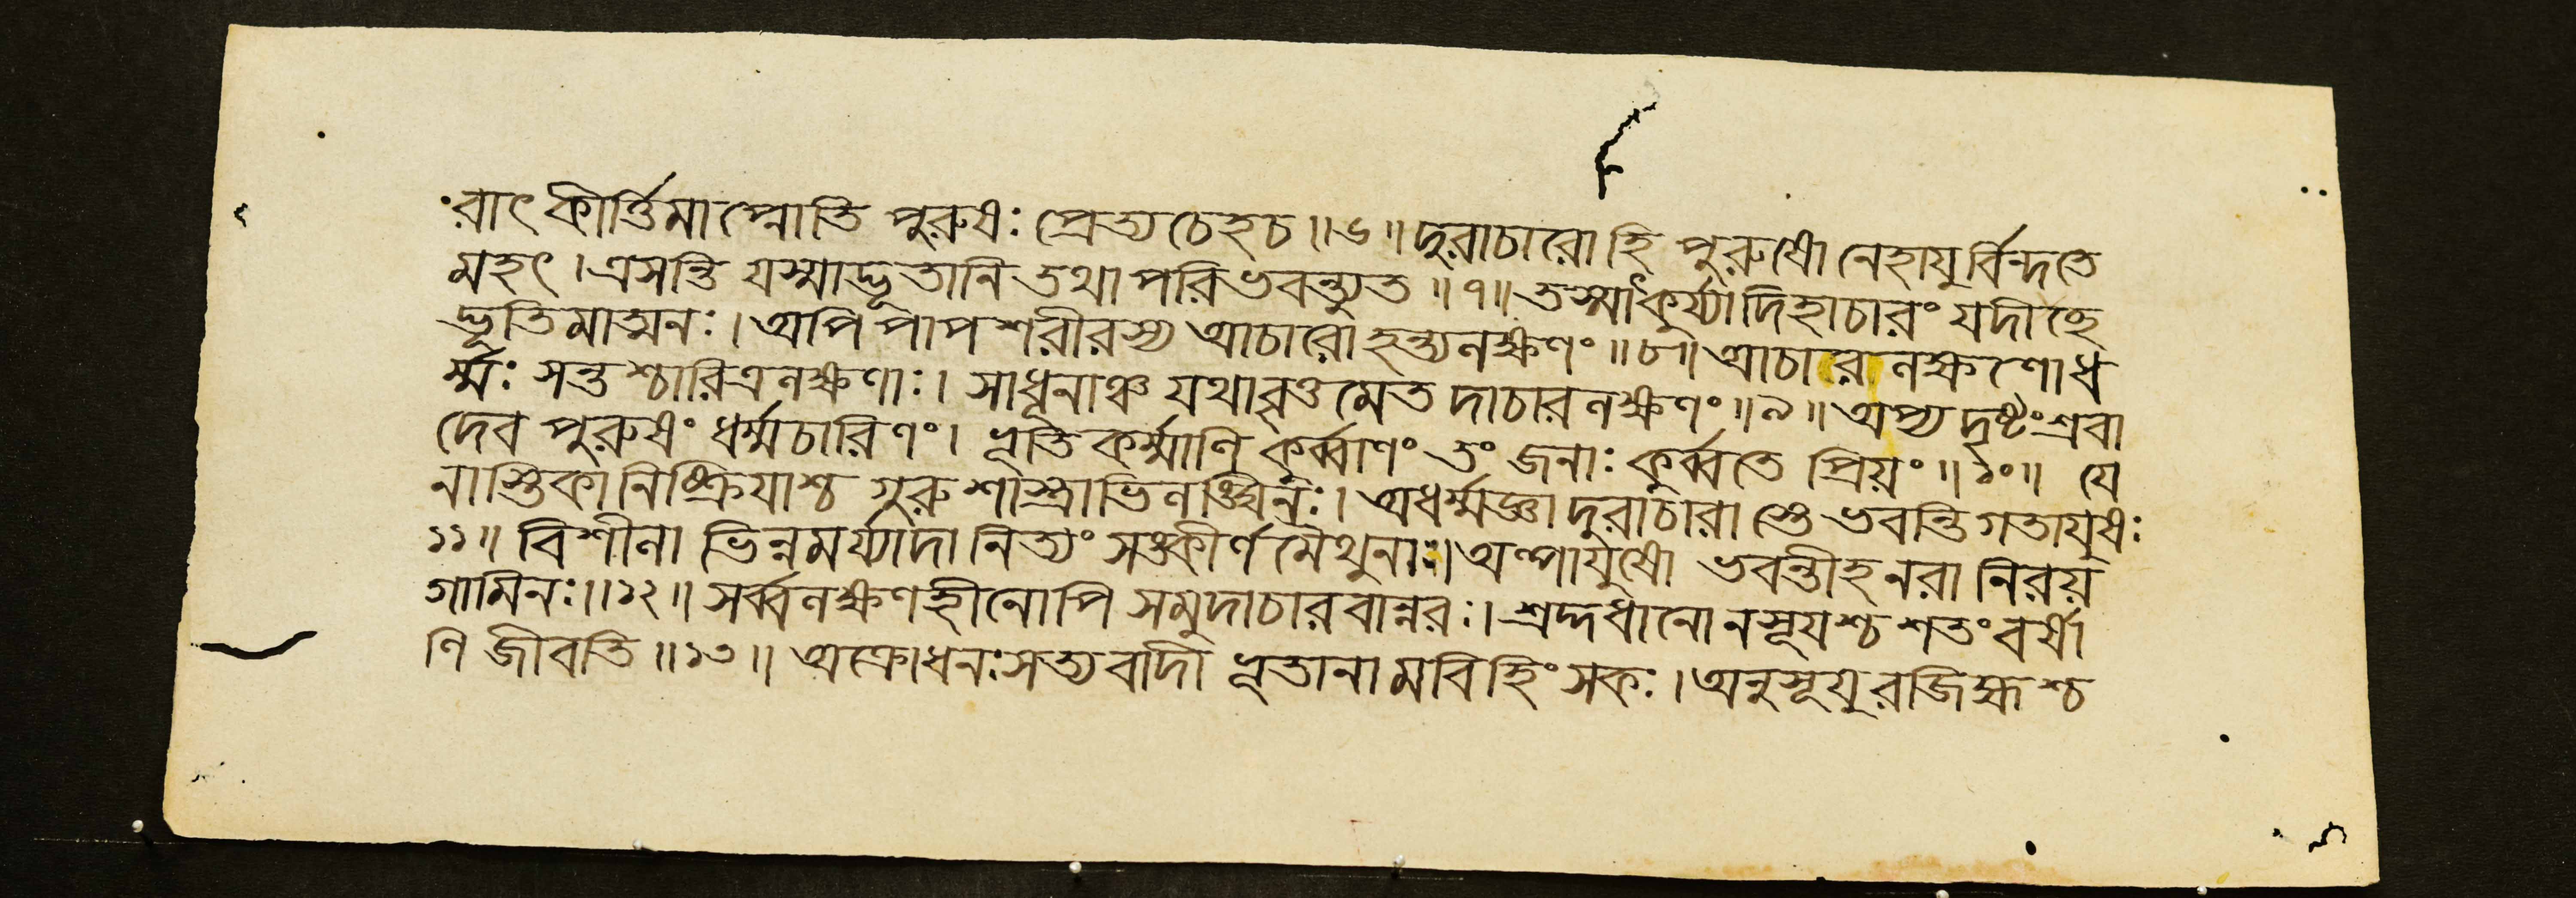 রাৎ কীর্ত্তিমাপ্নোতি পুরুষঃ প্রেত্য চেহ চ ॥ ৬ ॥ দুরাচারো হি পুরুষো নেহাযুর্বিন্দতে
মহৎ । ত্রসন্তি যস্মাদ্ভূতানি তথা পরিভবন্ত্যুত ॥ ৭ ॥ তস্মাৎকুর্য্যাদিহাচারং যদীচ্ছে
দ্ভূতিমাত্মনঃ । অপি পাপশরীরস্য আচারো হন্ত্যলক্ষণং ॥ ৮ ॥ আচারো লক্ষণো ধ
র্ম্মঃ সন্তশ্চারিত্রলক্ষণাঃ । সাধূনাঞ্চ যথাবৃত্তমেতদাচারলক্ষণং ॥ ৯ ॥ অপ্যদৃষ্টং শ্রবা
দেব পুরুষং ধর্ম্মচারিণং । ভূতিকর্ম্মাণি কুর্ব্বাণং তং জনাঃ কুর্ব্বতে প্রিয়ং ॥ ১০ ॥ যে
নাস্তিকা নিষ্ক্রিযাশ্চ গুরুশাস্ত্রাভিলঙ্ঘিনঃ । অধর্ম্মজ্ঞা দুরাচারাস্তে ভবন্তি গতাযুষঃ
১১ ॥ বিশীলা ভিন্নমর্য্যাদা নিত্যং সঙ্কীর্ণমৈথুনাঃ । অল্পাযুষো ভবন্তীহ নরা নিরয়
গামিনঃ ॥ ১২ ॥ সর্ব্বলক্ষণহীনোপি সমুদাচারবান্নরঃ । শ্রদ্দধানোনসূযশ্চ শতং বর্ষা
ণি জীবতি ॥ ১৩ ॥ অক্রোধনঃ সত্যবাদী ভূতানামবিহিংসকঃ । অনুসূযুরজিহ্মশ্চ